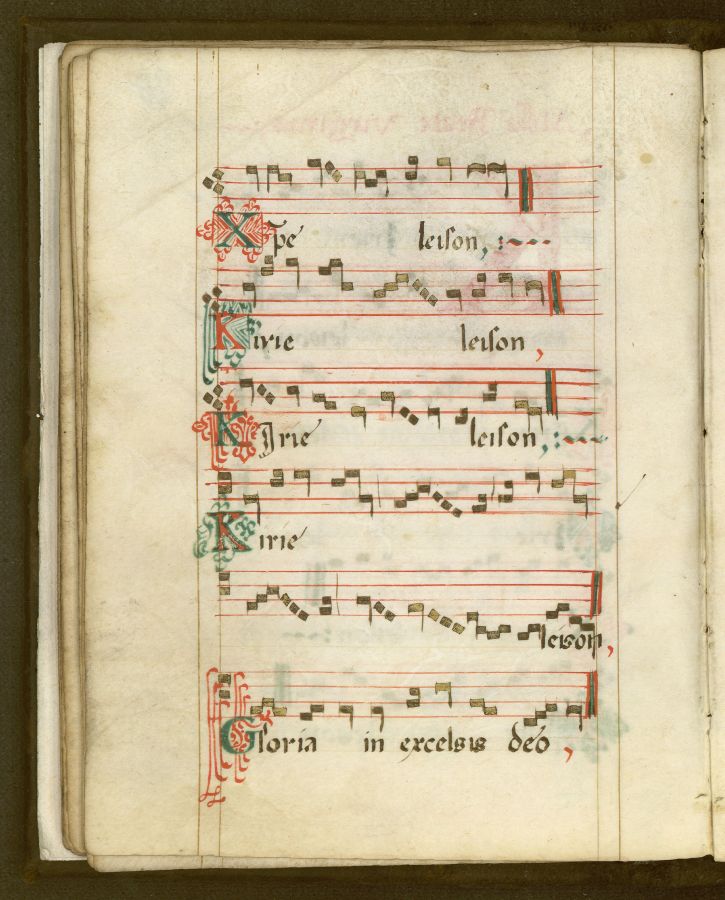 Xpe leison,
Kirie leison,
Kirie leison,
Kirie
leison,
Gloria in excelsis deo,